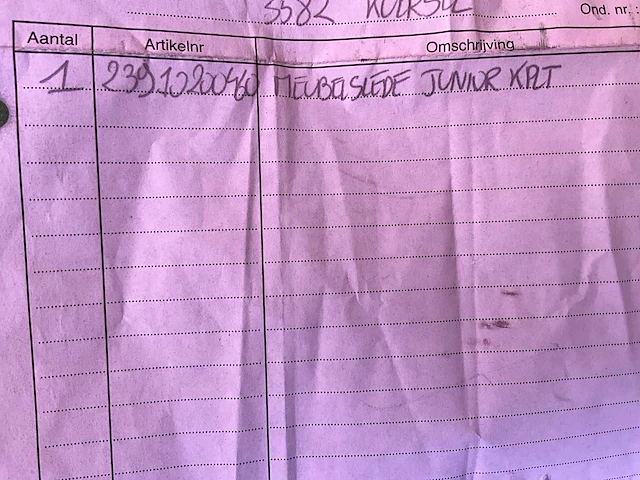 5582 KOERSEL Ond. nr. :
Aantal Artikelnr Omschrijving
1 2391020040 MEUBELSLEDE JUNIOR KPLT